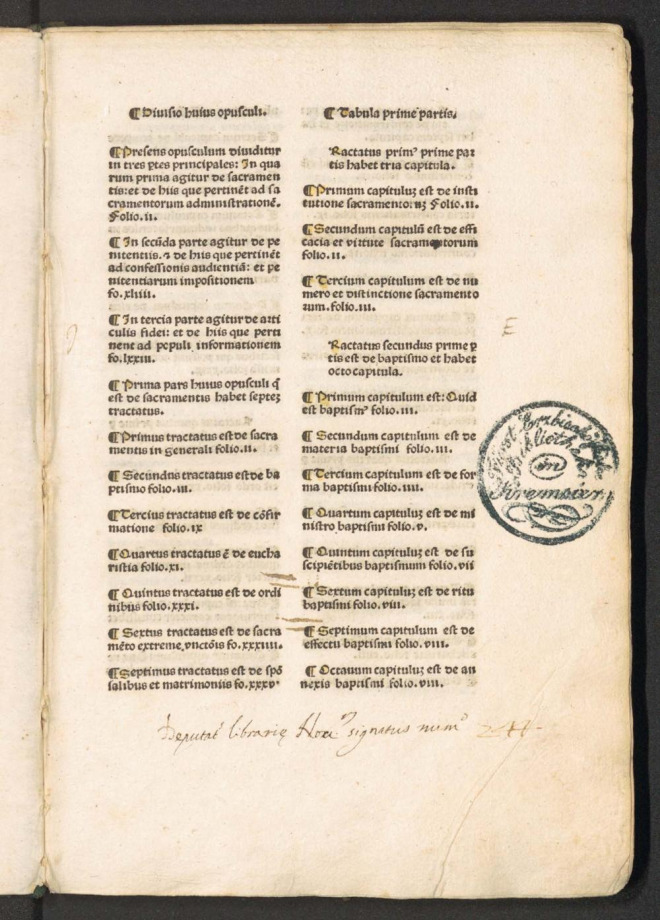 ¶ Diuisio huius opusculi.
¶ Presens opusculum diuiditur
in tres ꝑtes principales: In qua
rum prima agitur de sacramen
tis: et de hiis que pertinẽt ad sa
cramentorum administrationẽ.
Folio. ii.
¶ In secũda parte agitur de pe
nitentiis. ⁊ de hiis que pertinẽt
ad confessionis audientiã: et pe
nitentiarum impositionem
fo. xliiii.
¶ In tercia parte agitur de arti
culis fidei: et de hiis que perti
nent ad populi informationem
fo. lxxiii.
¶ Prima pars huius opusculi q̃
est de sacramentis habet septeꝫ
tractatus.
¶ Primus tractatus est de sacra
mentis in generali folio. ii.
¶ Secundus tractatus est de ba
ptismo folio. iii.
¶ Tercius tractatus est de cõfir
matione folio. ix
¶ Quartus tractatus ẽ de eucha
ristia folio. xi.
¶ Quintus tractatus est de ordi
nibus folio. xxxi.
¶ Sextus tractatus est de sacra
mẽto extreme vnctõis fo. xxxiiii.
¶ Septimus tractatus est de spõ
salibus et matrimoniis fo. xxxv.
¶ Tabula prime partis.
Ractatus primꝰ prime par
tis habet tria capitula.
¶ Primum capituluꝫ est de insti
tutione sacramentoruꝫ Folio. ii.
¶ Secundum capitulũ est de effi
cacia et virtute sacramentorum
folio. ii.
¶ Tercium capitulum est de nu
mero et distinctione sacramento
rum. folio. iii.
Ractatus secundus prime ꝑ
tis est de baptismo et habet
octo capitula.
¶ Primum capitulum est: Quid
est baptismꝰ folio. iii.
¶ Secundum capitulum est de
materia baptismi folio. iii.
¶ Tercium capitulum est de for
ma baptismi folio. iiii.
¶ Quartum capituluꝫ est de mi
nistro baptismi folio. v.
¶ Quintum capituluꝫ est de su
scipiẽtibus baptismum folio. vii
¶ Sextum capituluꝫ est de ritu
baptismi folio. viii.
¶ Septimum capitulum est de
effectu baptismi folio. viii.
¶ Octauum capituluꝫ est de an
nexis baptismi folio. viii.
E
Fürst Erzbischöfliche
Bibliothek
in
Kremsier
Deputat librarię signatus num